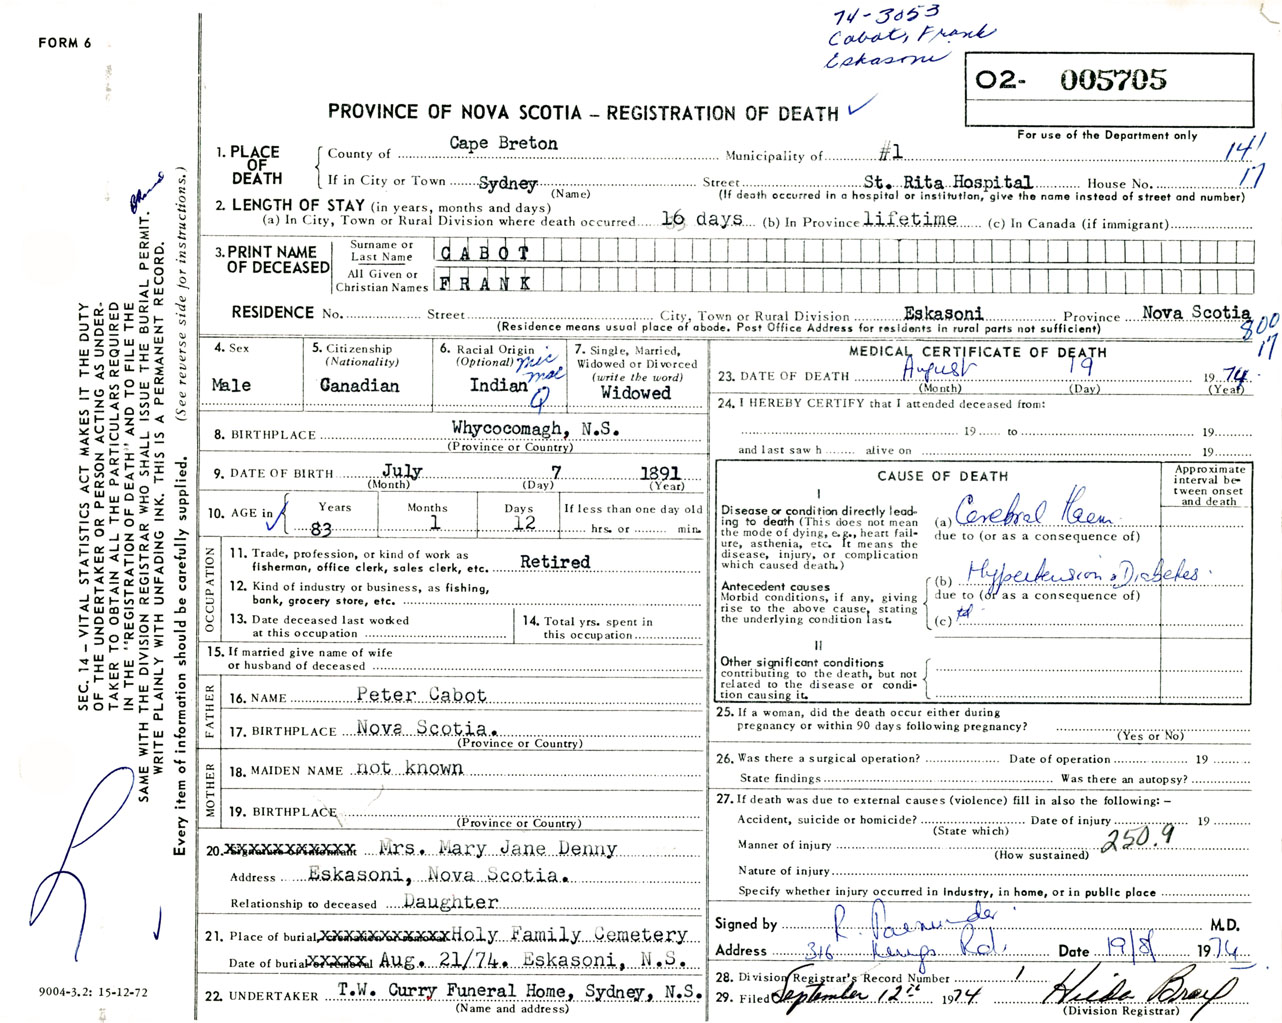 74-3053
Cabot, Frank
Eskasoni
FORM 6
O2- 005705
PROVINCE OF NOVA SCOTIA – REGISTRATION OF DEATH ✓
For use of the Department only
1. PLACE OF DEATH
County of Cape Breton Municipality of #1
14
17
If in City or Town Sydney Street St. Rita Hospital House No.
(Name) (If death occurred in a hospital or institution, give the name instead of street and number)
2. LENGTH OF STAY (in years, months and days)
(a) In City, Town or Rural Division where death occurred 16 days (b) In Province lifetime (c) In Canada (if immigrant)
3. PRINT NAME OF DECEASED
Surname or Last Name CABOT
All Given or Christian Names FRANK
RESIDENCE No. Street City, Town or Rural Division Eskasoni Province Nova Scotia
(Residence means usual place of abode. Post Office Address for residents in rural parts not sufficient)
800
17
4. Sex
Male
5. Citizenship
(Nationality)
Canadian
6. Racial Origin
(Optional) mic mac
Indian
7. Single, Married,
Widowed or Divorced
(write the word)
Widowed
8. BIRTHPLACE Whycocomagh, N.S.
(Province or Country)
9. DATE OF BIRTH July 7 1891
(Month) (Day) (Year)
10. AGE in
Years Months Days If less than one day old
83 1 12 hrs. or min.
OCCUPATION
11. Trade, profession, or kind of work as
fisherman, office clerk, sales clerk, etc. Retired
12. Kind of industry or business, as fishing,
bank, grocery store, etc.
13. Date deceased last worked
at this occupation
14. Total yrs. spent in
this occupation
15. If married give name of wife
or husband of deceased
FATHER
16. NAME Peter Cabot
17. BIRTHPLACE Nova Scotia.
(Province or Country)
MOTHER
18. MAIDEN NAME not known
19. BIRTHPLACE
(Province or Country)
20. xxxxxxxxxxxx Mrs. Mary Jane Denny
Address Eskasoni, Nova Scotia.
Relationship to deceased Daughter
21. Place of burial, xxxxxxxxxxxx Holy Family Cemetery
Date of burial xxxxx Aug. 21/74. Eskasoni, N.S.
22. UNDERTAKER T.W. Curry Funeral Home, Sydney, N.S.
(Name and address)
MEDICAL CERTIFICATE OF DEATH
23. DATE OF DEATH August 19 1974
(Month) (Day) (Year)
24. I HEREBY CERTIFY that I attended deceased from:
19 to 19
and last saw h alive on 19
CAUSE OF DEATH
Approximate
interval be-
tween onset
and death
I
Disease or condition directly lead-
ing to death (This does not mean
the mode of dying, e.g., heart fail-
ure, asthenia, etc. It means the
disease, injury, or complication
which caused death.)
(a) Cerebral Haem.
due to (or as a consequence of)
Antecedent causes
Morbid conditions, if any, giving
rise to the above cause, stating
the underlying condition last.
(b) Hypertension, Diabetes.
due to (or as a consequence of)
(c)
II
Other significant conditions
contributing to the death, but not
related to the disease or condi-
tion causing it.
25. If a woman, did the death occur either during
pregnancy or within 90 days following pregnancy?
(Yes or No)
26. Was there a surgical operation? Date of operation 19
State findings Was there an autopsy?
27. If death was due to external causes (violence) fill in also the following: –
Accident, suicide or homicide? Date of injury 19
(State which)
Manner of injury 250.9
(How sustained)
Nature of injury
Specify whether injury occurred in industry, in home, or in public place
Signed by R. M.D.
Address 316 Kings Rd. Date 19/8/ 1974
28. Division Registrar's Record Number 1
29. Filed September 12th 1974
(Division Registrar)
SEC. 14 – VITAL STATISTICS ACT MAKES IT THE DUTY
OF THE UNDERTAKER OR PERSON ACTING AS UNDER-
TAKER TO OBTAIN ALL THE PARTICULARS REQUIRED
IN THE "REGISTRATION OF DEATH" AND TO FILE THE
SAME WITH THE DIVISION REGISTRAR WHO SHALL ISSUE THE BURIAL PERMIT.
WRITE PLAINLY WITH UNFADING INK. THIS IS A PERMANENT RECORD.
Every item of information should be carefully supplied. (See reverse side for instructions.)
9004-3.2: 15-12-72